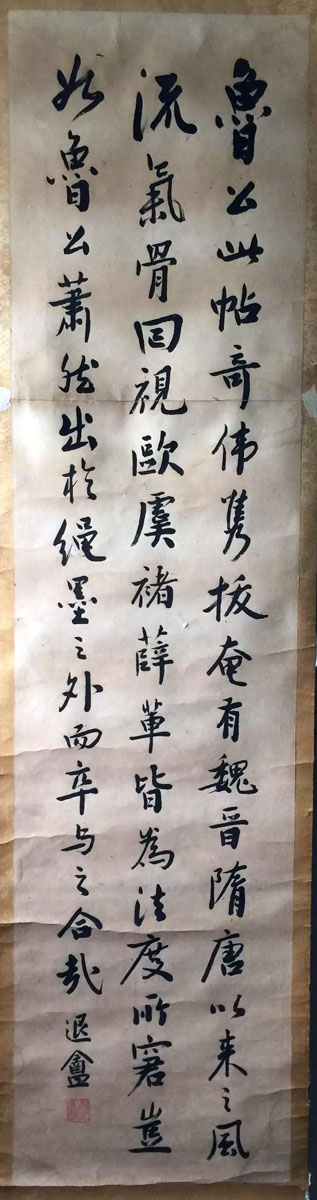 魯公此帖奇伟雋拔奄有魏晋隋唐以来之風
流氣骨囘視歐虞褚薛軰皆為法度所窘豈
如魯公蕭然出於繩墨之外而卒与之合哉
退盦